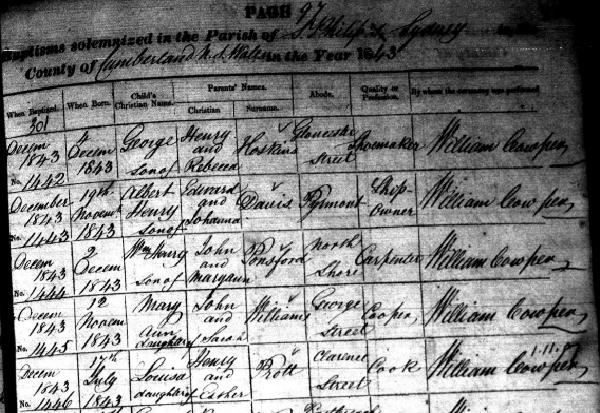 PAGE 97
Baptisms solemnized in the Parish of St Philip Sydney
County of Cumberland N. S. Wales in the Year 1843
When Baptized When Born. Child's Christian Name. Parents' Names. Christian Surname. Abode. Quality or Profession. By whom the ceremony was performed
301
Decem 1843 No. 1442 4 Decem 1843 George Son of Henry and Rebecca Hoskins Gloucester Street Shoemaker William Cowper
December 1843 No. 1443 19th Novemr 1843 Albert Henry Son of Edward and Johanna Davis Pyrmont Ship-Owner William Cowper
Decem 1843 No. 1444 2 Decem 1843 Wm Henry Son of John and Margann Ponsford North Shore Carpenter William Cowper
Decem 1843 No. 1445 12 Novem 1843 Mary Ann Daughter of John and Sarah Williams George Street Cooper William Cowper
Decem 1843 No. 1446 17th July 1843 Louisa daughter of Henry and Esther Prott Clarence Street Cook William Cowper